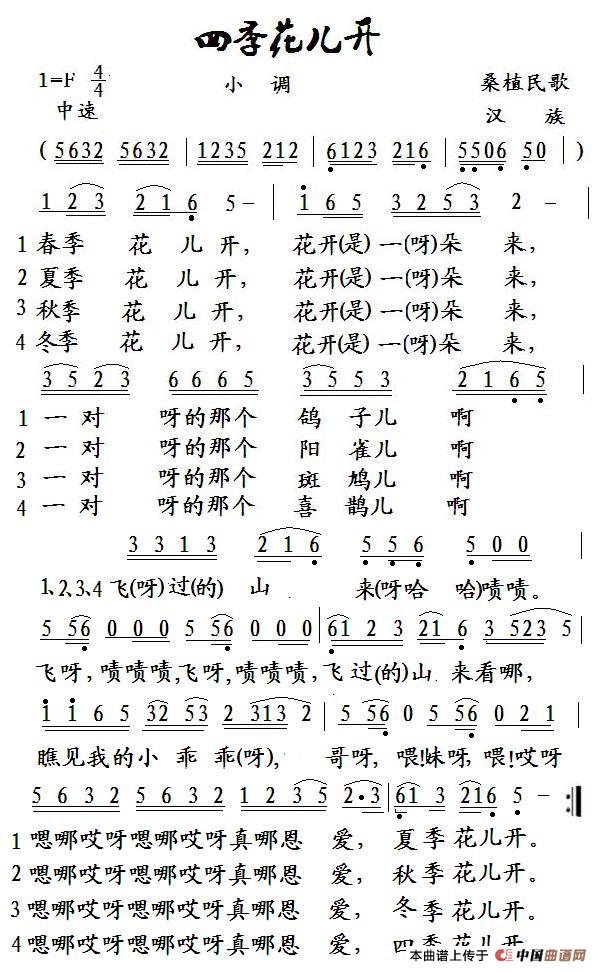 四季花儿开
1=F 4/4 小 调 桑植民歌
中速 汉 族
( 5632 5632 | 1235 212 | 6123 216 | 5506 50 | )
1 2 3 2 1 6 5 - | 1 6 5 3 2 5 3 2 - |
1 春季 花 儿 开, 花开(是) 一(呀)朵 来,
2 夏季 花 儿 开, 花开(是) 一(呀)朵 来,
3 秋季 花 儿 开, 花开(是) 一(呀)朵 来,
4 冬季 花 儿 开, 花开(是) 一(呀)朵 来,
3 5 2 3 6 6 6 5 3 5 5 3 2 1 6 5 |
1 一 对 呀的那个 鸽 子儿 啊
2 一 对 呀的那个 阳 雀儿 啊
3 一 对 呀的那个 斑 鸠儿 啊
4 一 对 呀的那个 喜 鹊儿 啊
3 3 1 3 2 1 6 5 5 6 5 0 0 |
1、2、3、4 飞(呀)过(的) 山 来(呀哈 哈)啧啧。
5 56 0 0 0 5 56 0 0 0 | 61 2 3 21 6 3 523 5
飞呀, 啧啧啧,飞呀, 啧啧啧, 飞过(的)山 来看哪,
1 1 6 5 32 53 2 313 2 | 5 56 0 5 56 0 2 0 |
瞧见我的小 乖 乖(呀), 哥呀, 喂!妹呀, 喂!哎呀
5 6 3 2 5 6 3 2 1 2 3 5 2·3 | 61 3 216 5 - :||
1 嗯哪哎呀嗯哪哎呀真哪恩 爱, 夏季花儿开。
2 嗯哪哎呀嗯哪哎呀真哪恩 爱, 秋季花儿开。
3 嗯哪哎呀嗯哪哎呀真哪恩 爱, 冬季花儿开。
4 嗯哪哎呀嗯哪哎呀真哪恩 爱, 四季花儿开
本曲谱上传于 中国曲谱网